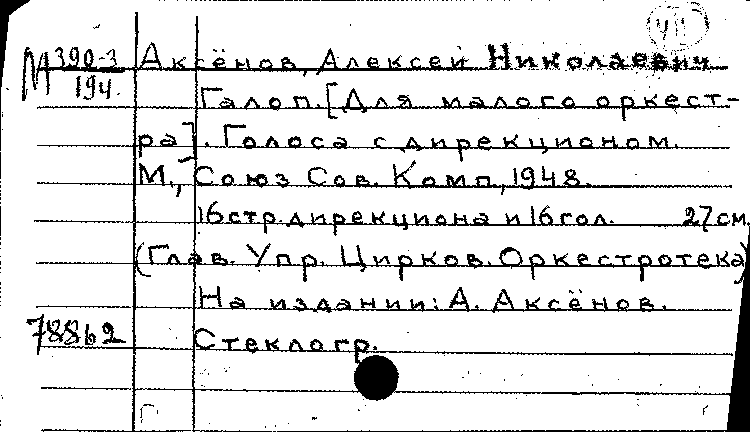 М 390-3/194. Аксёнов, Алексей Николаевич
Галоп. [Для малого оркест-
ра]. Голоса с дирекционом.
М., Союз Сов. Комп., 1948.
16 стр. дирекциона и 16 гол. 27 см.
(Глав. Упр. Цирков. Оркестротека)
На издании: А. Аксёнов.
78862 Стеклогр.